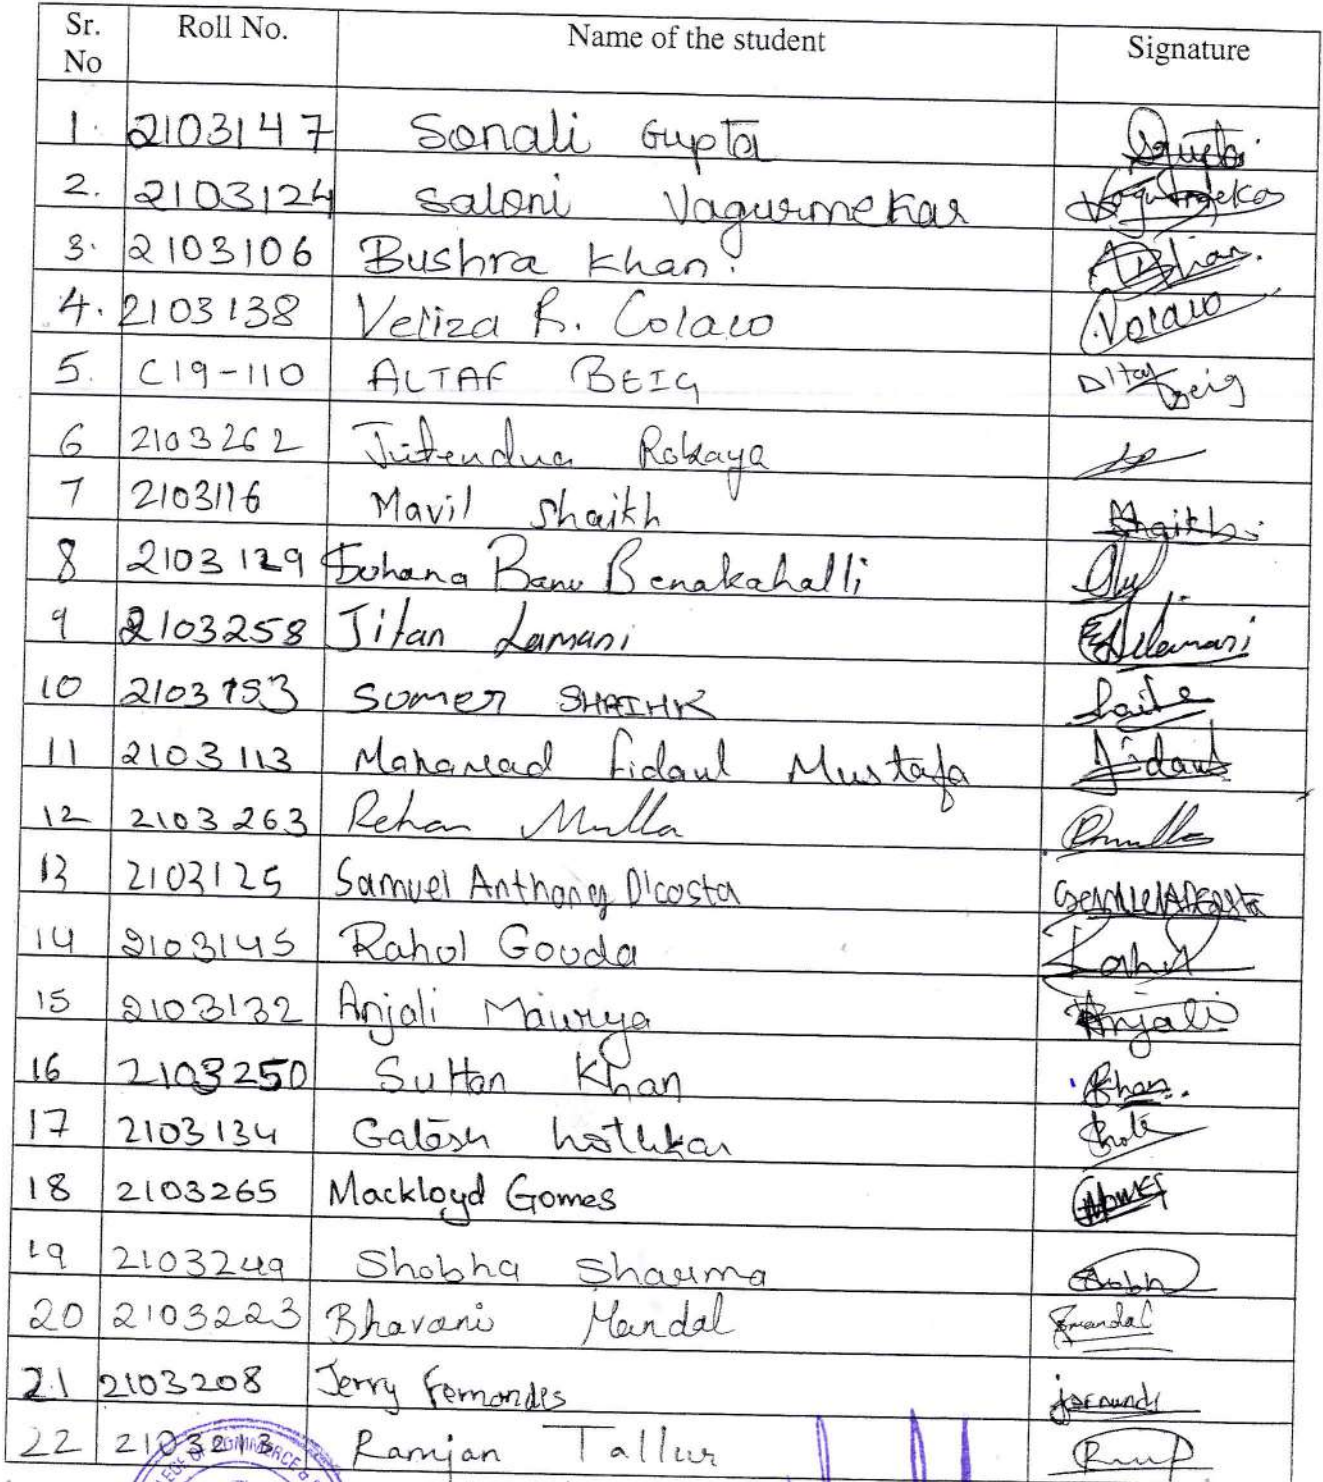 Sr. No Roll No. Name of the student Signature
1. 2103147 Sonali Gupta Gupta
2. 2103124 Saloni Vagurmekar Vagurmekar
3. 2103106 Bushra Khan. Khan.
4. 2103138 Veliza R. Colaco Colaco
5. C19-110 ALTAF BEIG Altaf Beig
6 2103262 Jitendra Rokaya
7 2103116 Mavil Shaikh Shaikh
8 2103129 Suhana Banu Benakahalli
9 2103258 Jitan Lamani Lamani
10 2103153 Sumer SHAIHK
11 2103113 Mahamad Fidaul Mustafa Fidaul
12 2103263 Rehan Mulla Rmulla
13 2103125 Samuel Anthony D'costa
14 2103145 Rahul Gouda Rahul
15 2103132 Anjali Maurya Anjali
16 2103250 Sultan Khan Khan.
17 2103134 Khot
18 2103265 Mackloyd Gomes Gomes
19 2103249 Shobha Sharma Shobh
20 2103223 Bhavani Mandal Bmandal
21 2103208 Jerry Fernandes
22 2103213 Ramjan Tallur
COMMERCE &